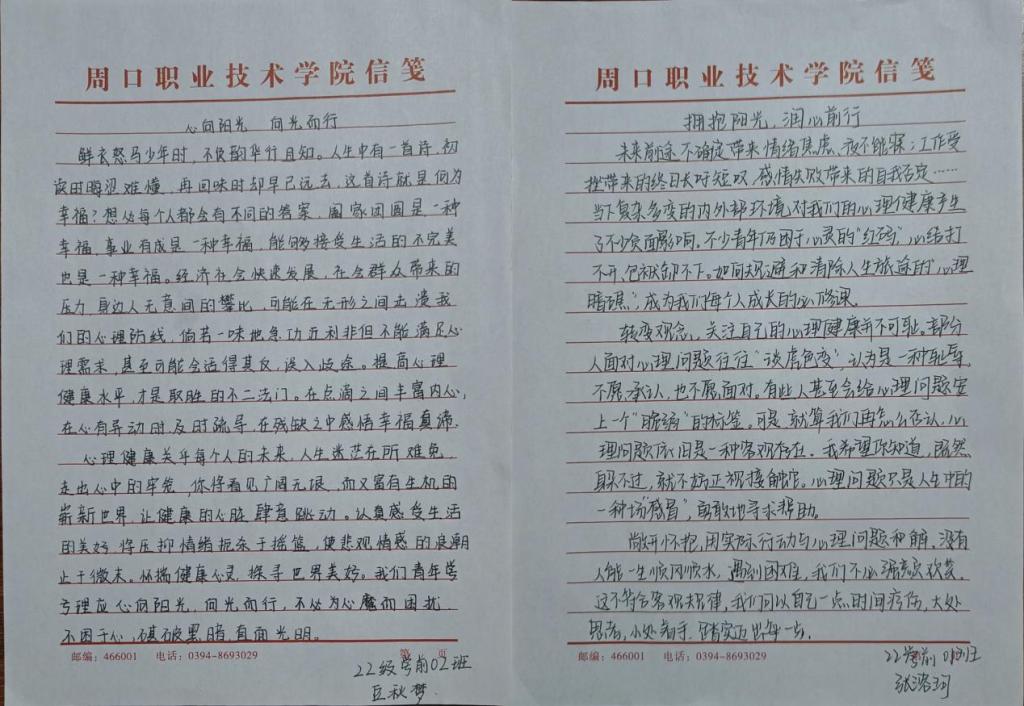 周口职业技术学院信笺
心向阳光 向光而行
鲜衣怒马少年时,不负韶华行且知。人生中有一首诗,初
读时晦涩难懂,再回味时却早已远去,这首诗就是何为
幸福?想必每个人都会有不同的答案,阖家团圆是一种
幸福,事业有成是一种幸福,能够接受生活的不完美
也是一种幸福。经济社会快速发展,社会群众带来的
压力,身边人无意间的攀比,可能在无形之间击溃我
们的心理防线,倘若一味地急功近利非但不能满足心
理需求,甚至可能会适得其反,误入歧途。提高心理
健康水平,才是取胜的不二法门。在点滴之间丰富内心,
在心有异动时及时疏导,在残缺之中感悟幸福真谛。
心理健康关乎每个人的未来,人生迷茫在所难免,
走出心中的牢笼,你将看见广阔无垠,而又富有生机的
崭新世界,让健康的心脏肆意跳动。认真感受生活
的美好,将压抑情绪扼杀于摇篮,使悲观情感的浪潮
止于微末。怀揣健康心灵,探寻世界美好。我们青年学
子理应心向阳光,向光而行,不必为心魔而困扰
不困于心,碾破黑暗,直面光明。
邮编:466001 电话:0394-8693029 第 页
22级学前02班
豆秋梦
周口职业技术学院信笺
拥抱阳光,润心前行
未来前途不确定带来情绪焦虑、夜不能寐;工作受
挫带来的终日长吁短叹,感情失败带来的自我否定……
当下复杂多变的内外部环境,对我们的心理健康产生
了不少负面影响。不少青年仍困于心灵的“红码”,心结打
不开,包袱卸不下。如何规避和清除人生旅途的“心理
暗礁”,成为我们每个人成长的必修课。
转变观念,关注自己的心理健康并不可耻。部分
人面对心理问题往往“谈虎色变”,认为是一种耻辱,
不愿承认,也不愿面对。有些人甚至会给心理问题安
上一个“脆弱”的标签。可是,就算我们再怎么否认,心
理问题依旧是一种客观存在。我希望你知道,既然
躲不过,就不妨正视接触它。心理问题只是人生中的
一种场“感冒”,勇敢地寻求帮助。
敞开怀抱,用实际行动与心理问题和解。没有
人能一生顺风顺水,遇到困难,我们不必强颜欢笑,
这不符合客观规律,我们可以自己一点时间疗伤,大处
思考,小处着手,踏实迈出每一步。
邮编:466001 电话:0394-8693029
22学前 班
张